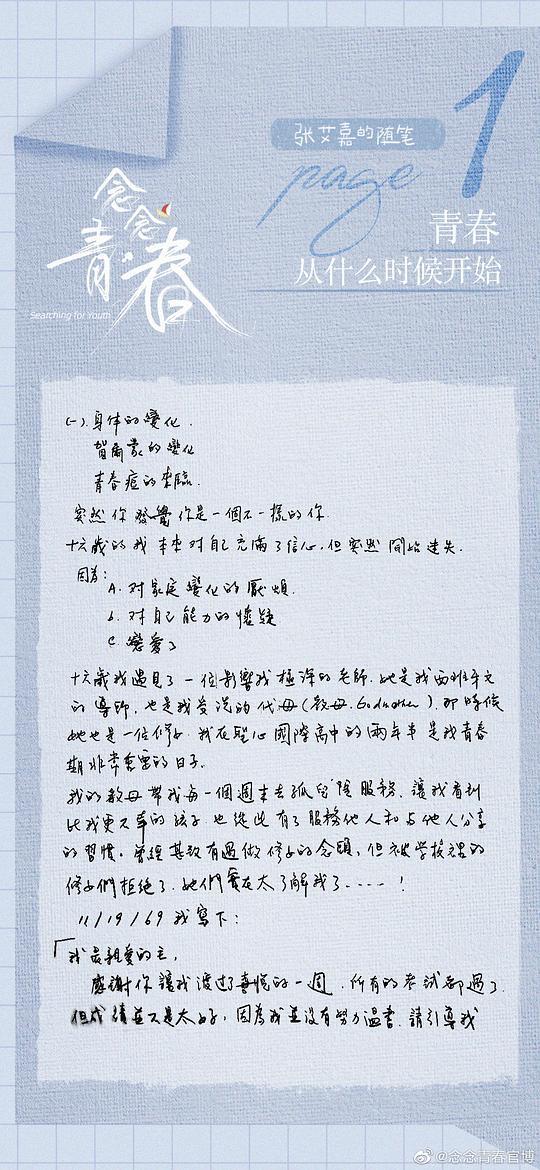 张艾嘉的随笔
page 1
念念
青春
Searching for Youth
青春
从什么时候开始
(一).身体的變化.
賀爾蒙的變化
青春痘的來臨.
突然你發覺你是一個不一樣的你.
十六歲的我本來對自己充滿了信心,但突然開始迷失.
因為:
A.對家庭變化的厭煩.
b.對自己能力的懷疑
c.戀愛了
十六歲我遇見了一位影響我極深的老師.她是我西班牙文
的導師,也是我受洗的代母(教母.Godmother).那時候
她也是一位修女.我在聖心國際高中的兩年半是我青春
期非常重要的日子.
我的教母帶我每一個週末去孤兒院服務.讓我看到
比我更不幸的孩子也從此有了服務他人和与他人分享
的習慣.曾經甚致有過做修女的念頭,但被学校裡的
修女們拒绝了.她們實在太了解我了.....!
11/19/69我寫下:
「我最親愛的主,
感謝你讓我渡过了喜悅的一週.所有的考試都過了
但成績並不是太好,因為我並沒有努力溫書.請引導我
@念念青春官博